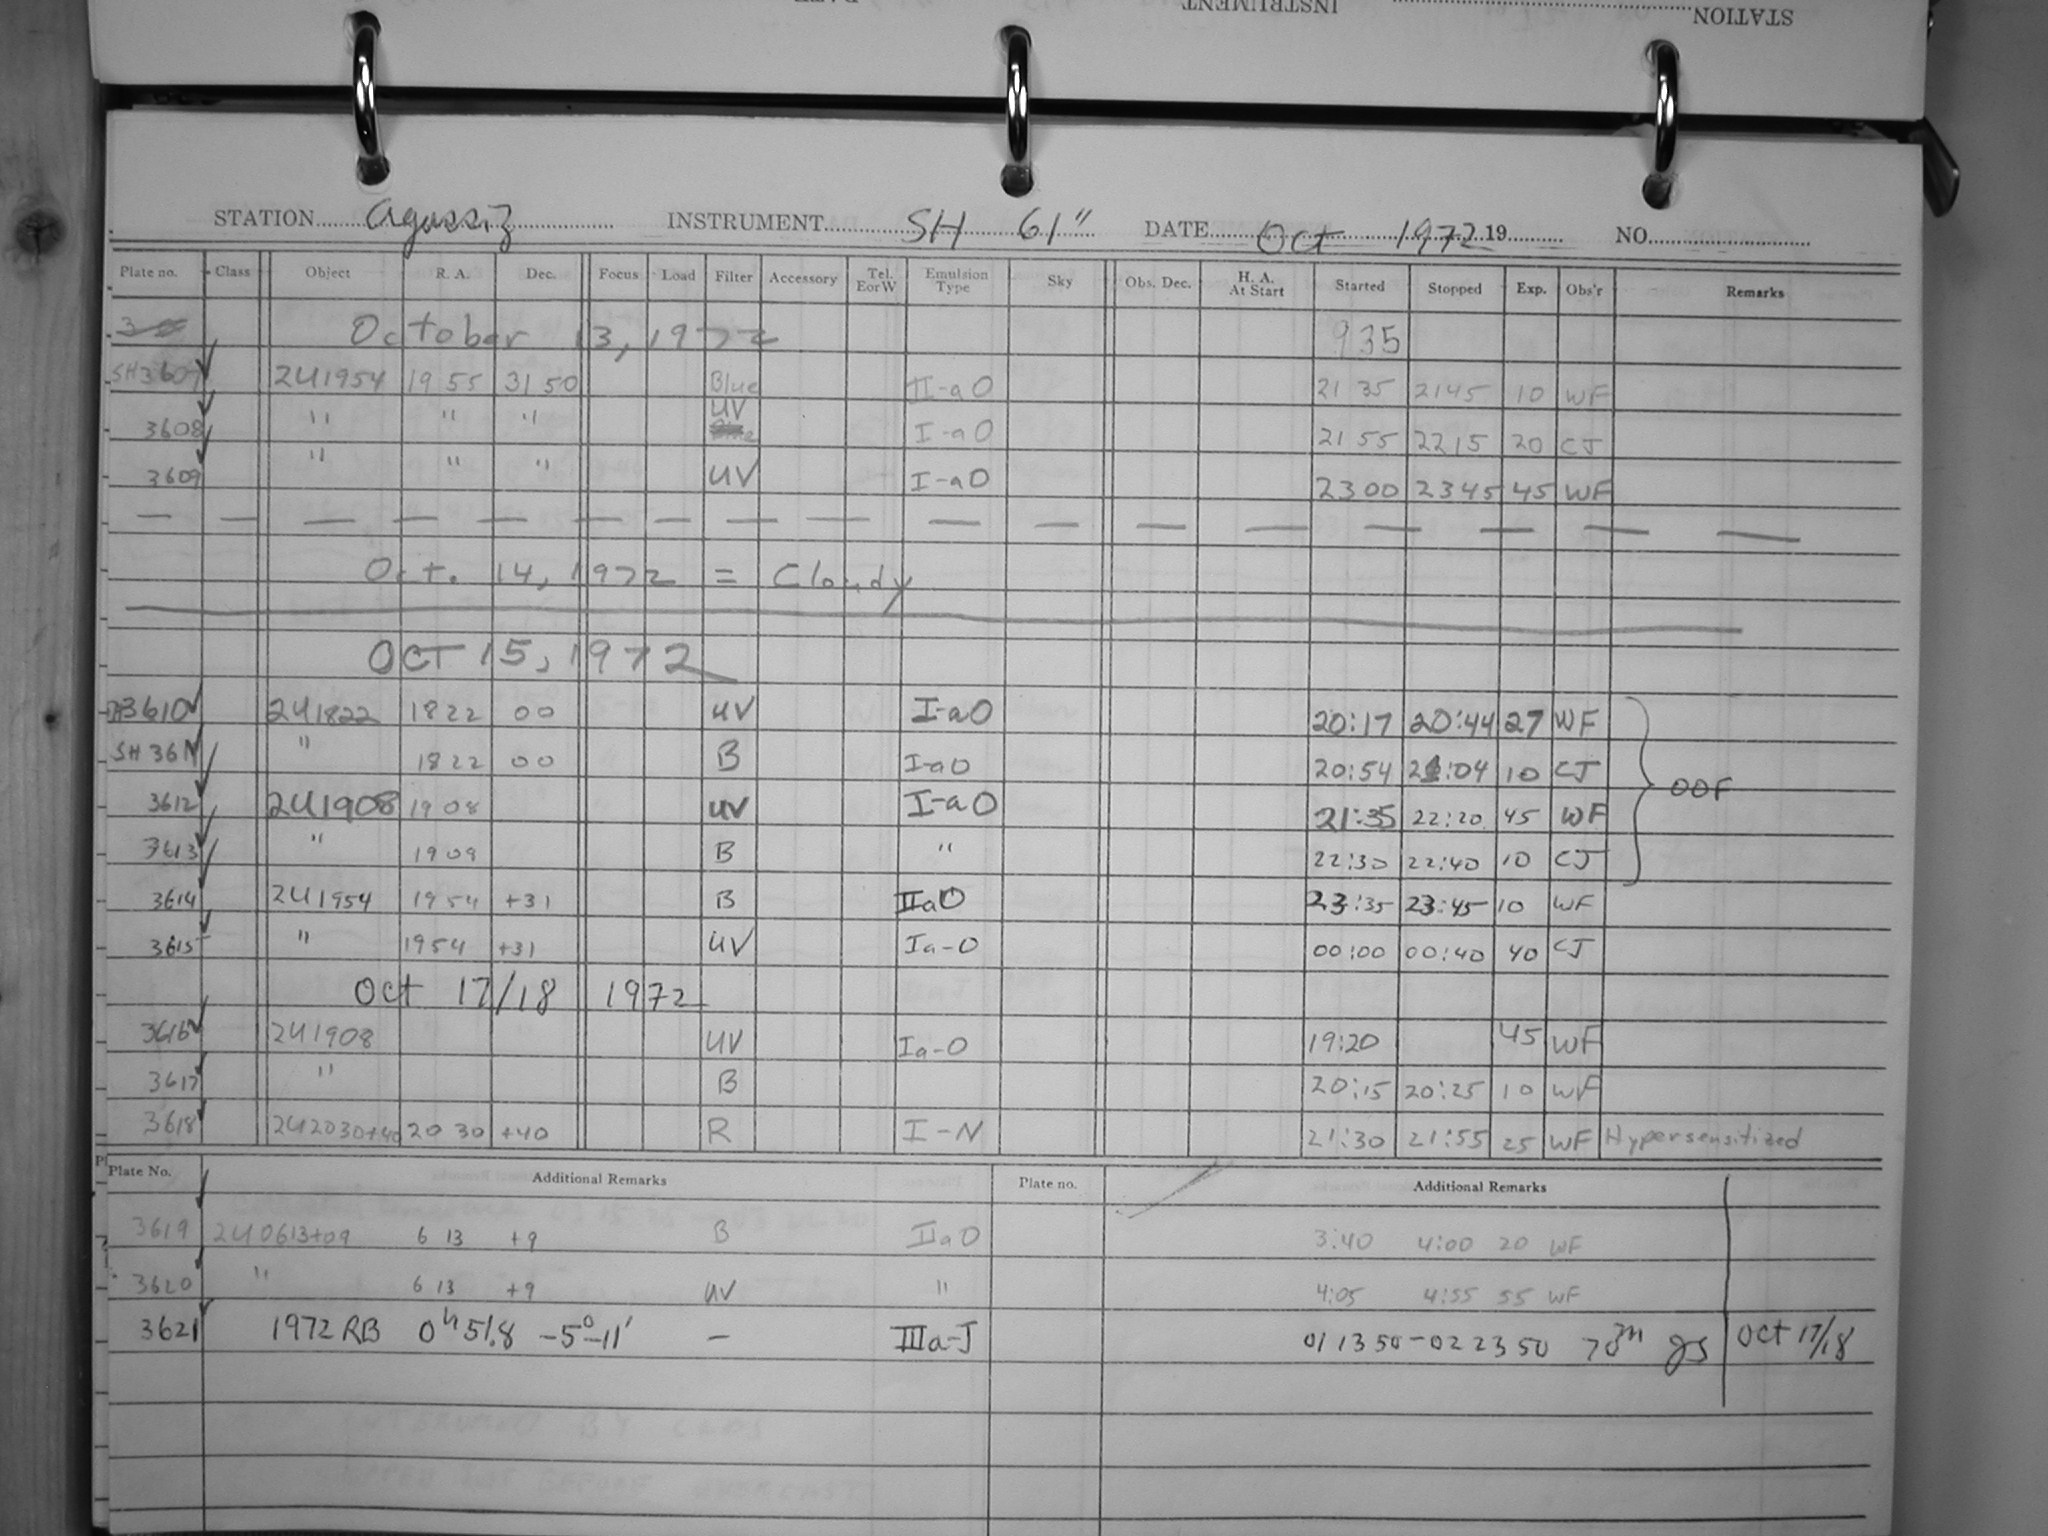 STATION INSTRUMENT
STATION Agassiz INSTRUMENT SH 61" DATE Oct 1972 19 NO.
Plate no. Class Object R. A. Dec. Focus Load Filter Accessory Tel. E or W Emulsion Type Sky Obs. Dec. H. A. At Start Started Stopped Exp. Obs'r Remarks
October 13, 1972 935
SH3607 2U1954 19 55 31 50 Blue II-aO 21 35 2145 10 WF
3608 " " " UV I-aO 21 55 2215 20 CJ
3609 " " " UV I-aO 2300 2345 45 WF
Oct. 14, 1972 = Cloudy
OCT 15, 1972
3610 2U1822 1822 00 UV I-aO 20:17 20:44 27 WF
SH 3611 " 1822 00 B I-aO 20:54 21:04 10 CJ OOF
3612 2U1908 1908 UV I-aO 21:35 22:20 45 WF
3613 " 1908 B " 22:30 22:40 10 CJ
3614 2U1954 1954 +31 B IIaO 23:35 23:45 10 WF
3615 " 1954 +31 UV Ia-O 00:00 00:40 40 CJ
Oct 17/18 1972
3616 2U1908 UV Ia-O 19:20 45 WF
3617 " B 20:15 20:25 10 WF
3618 2U2030+40 20 30 +40 R I-N 21:30 21:55 25 WF Hypersensitized
Plate No. Additional Remarks Plate no. Additional Remarks
3619 2U0613+09 6 13 +9 B IIaO 3:40 4:00 20 WF
3620 " 6 13 +9 UV " 4:05 4:55 55 WF
3621 1972 RB 0h 51.8 -5°-11' - IIIa-J 01 13 50 - 02 23 50 70m JS Oct 17/18